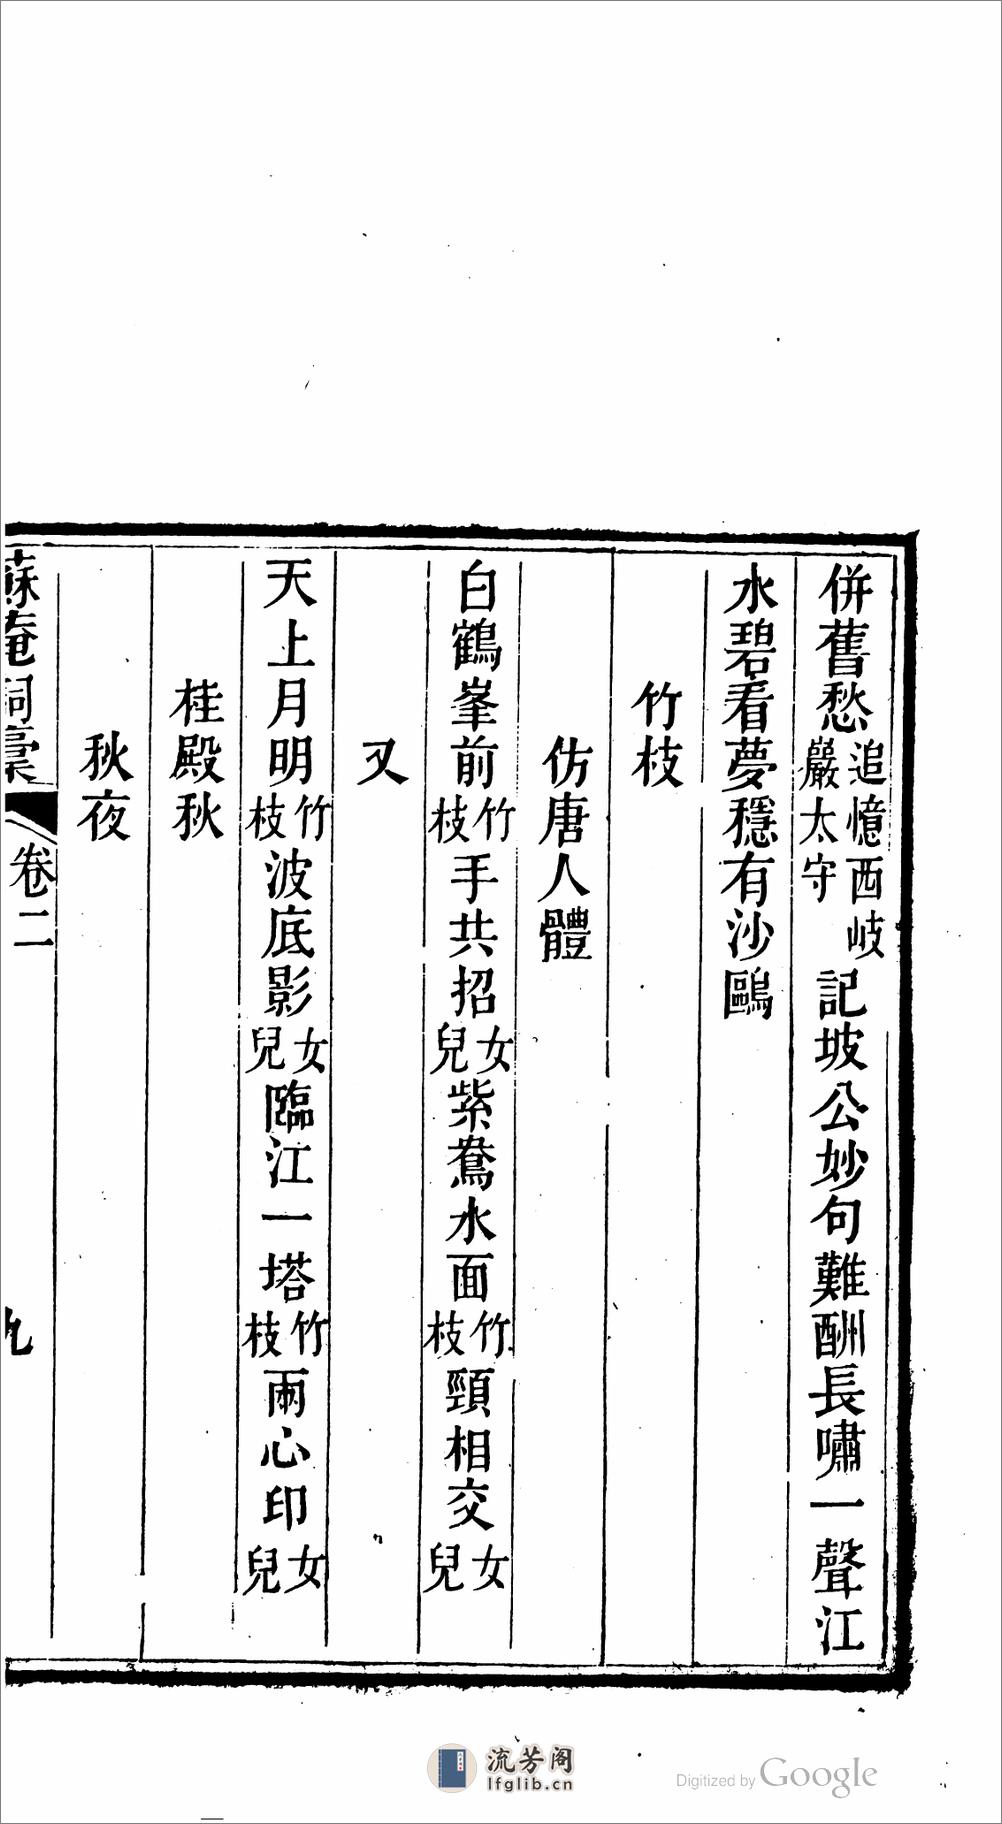 併舊愁追憶西岐嚴太守記坡公妙句難酬長嘯一聲江
水碧看夢穩有沙鷗
竹枝
仿唐人體
白鶴峯前竹枝手共招女兒紫鴦水面竹枝頸相交女兒
又
天上月明竹枝波底影女兒臨江一塔竹枝兩心印女兒
桂殿秋
秋夜
蘇庵詞稾 卷二 九
流芳阁
lfglib.cn
Digitized by Google